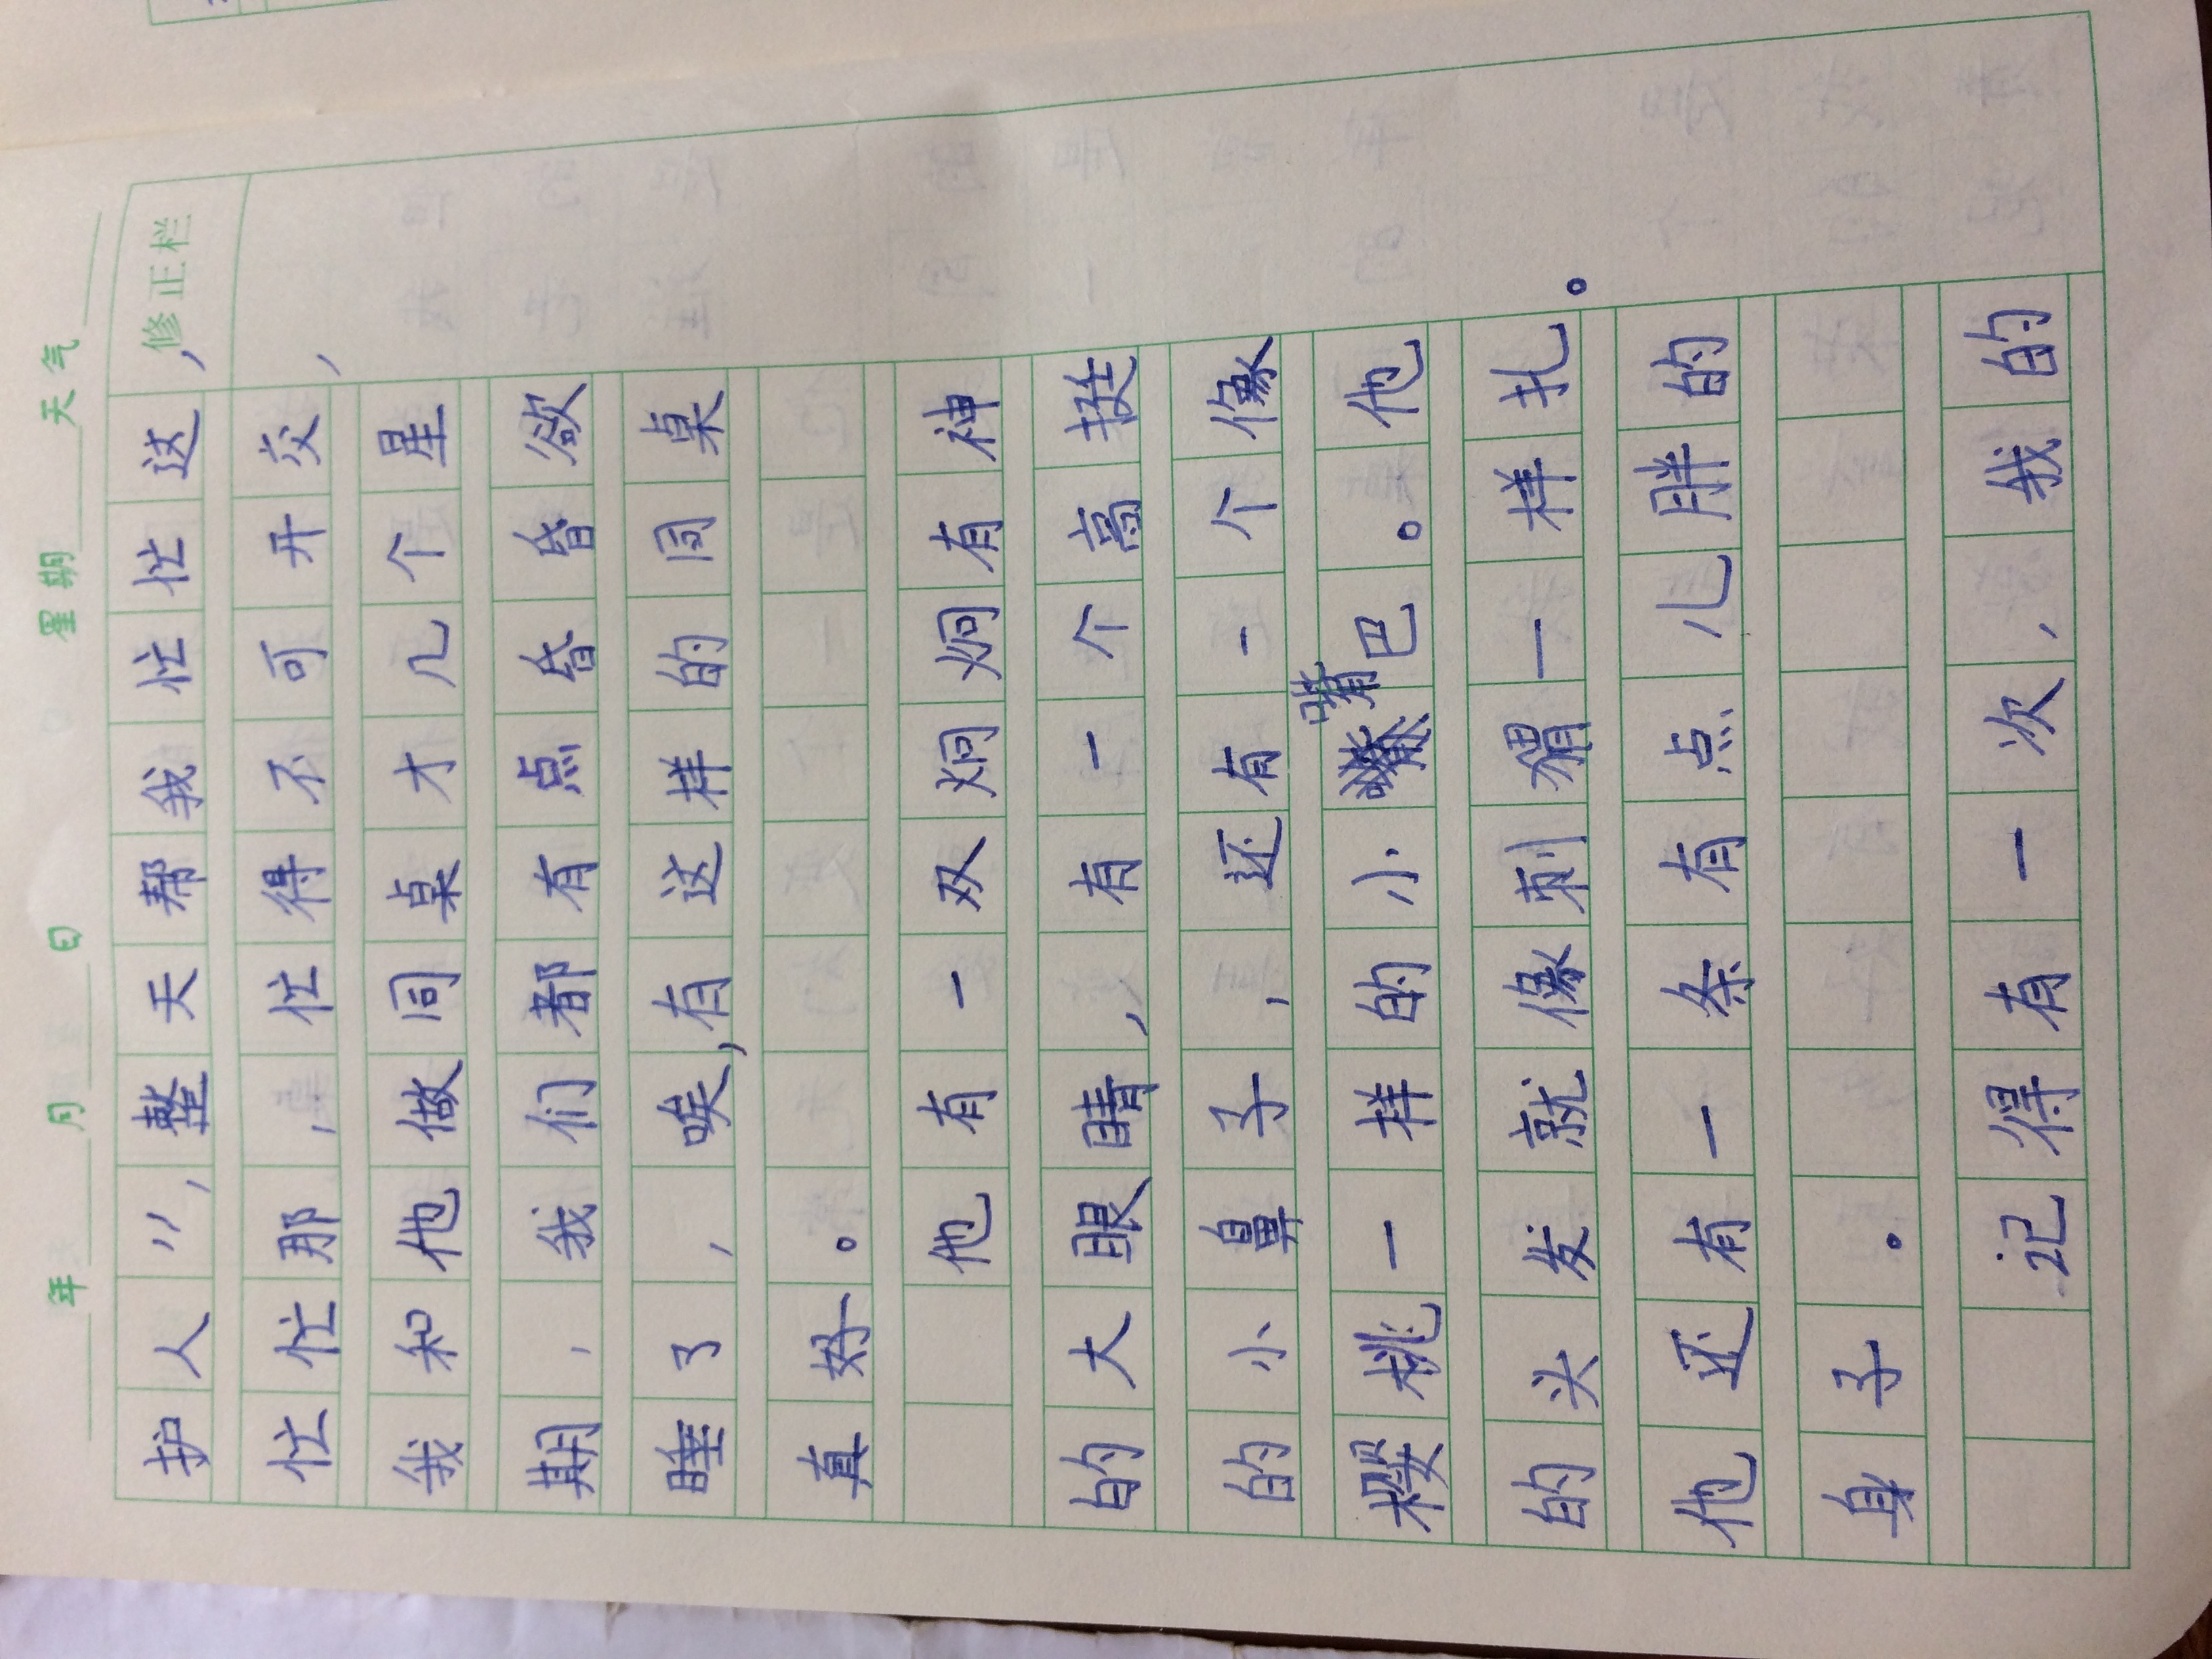 年 月 日 星期 天气
修正栏
护人”,整天帮我忙忙这,
忙忙那,忙得不可开交,
我和他做同桌才几个星
期,我们都有点昏昏欲
睡了,唉,有这样的同桌
真好。
他有一双炯炯有神
的大眼睛,有一个高挺
的小鼻子,还有一个像
樱桃一样的小嘴巴。他
的头发就像刺猬一样扎。
他还有一条有点儿胖的
身子。
记得有一次,我的